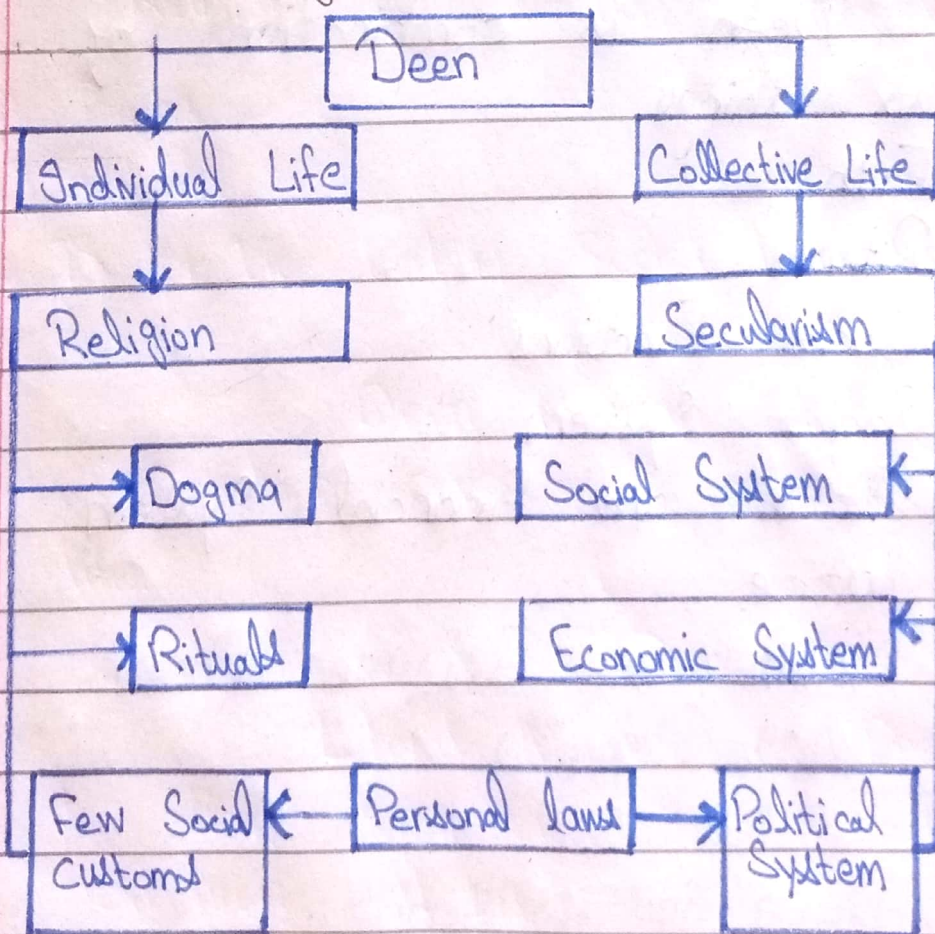 Deen
Individual Life
Collective Life
Religion
Secularism
Dogma
Social System
Rituals
Economic System
Few Social
customs
Personal laws
Political
System